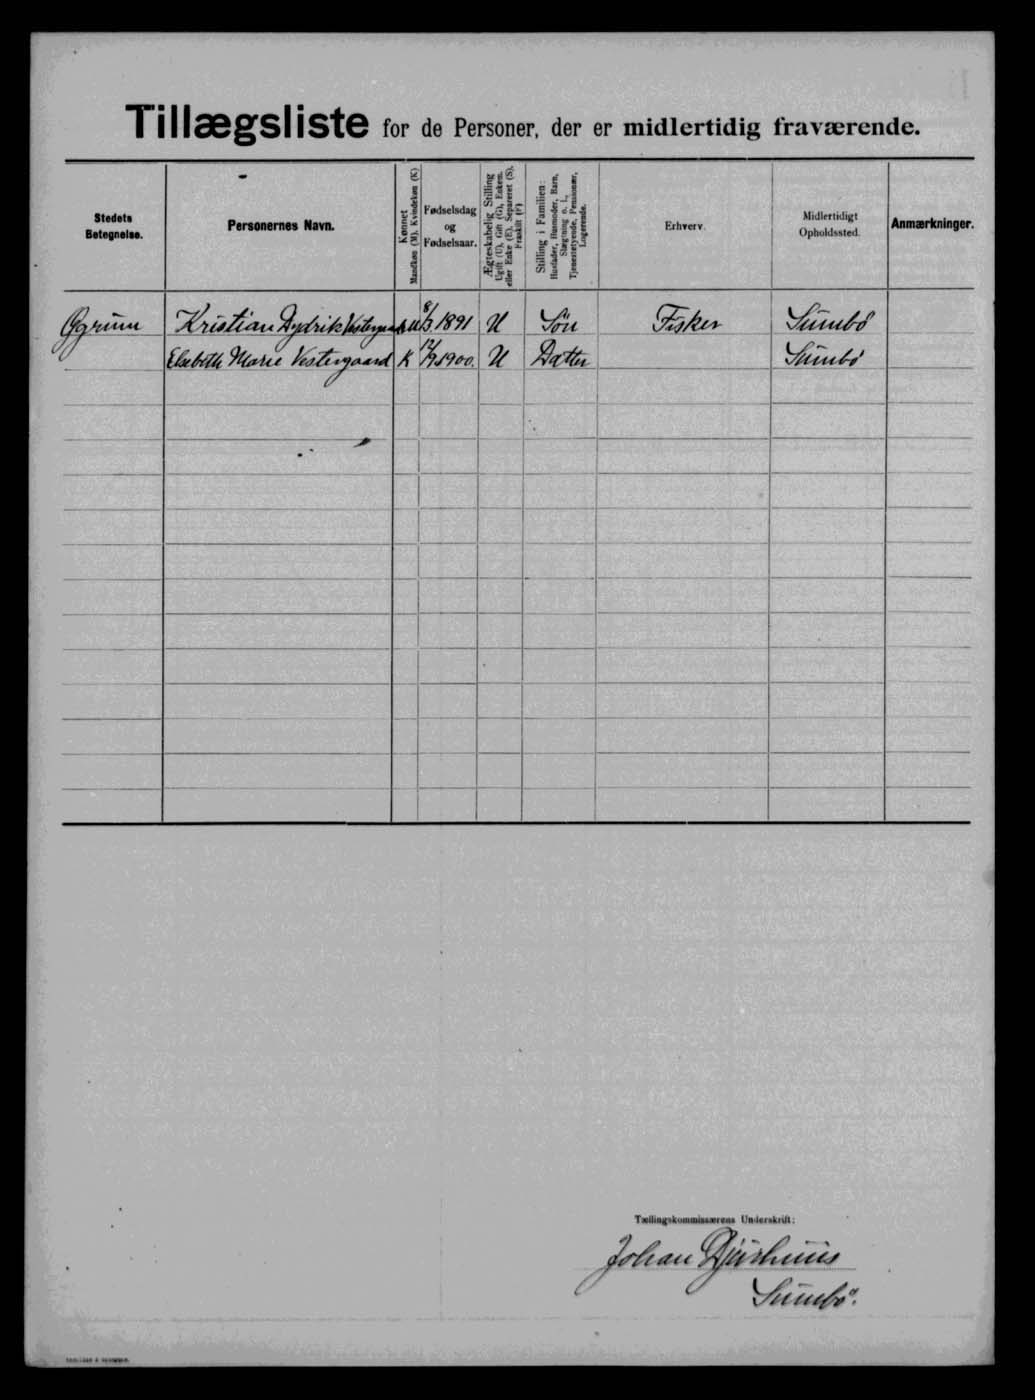 Tillægsliste for de Personer, der er midlertidig fraværende.
Stedets Betegnelse.
Personernes Navn.
Kønnet
Mandkøn (M). Kvindekøn (K)
Fødselsdag og Fødselsaar.
Ægteskabelig Stilling
Ugift (U), Gift (G), Enkem.
eller Enke (E), Separeret (S),
Fraskilt (F)
Stilling i Familien:
Husfader, Husmoder, Barn,
Slægtning o. l.,
Tjenestetyende, Pensionær,
Logerende.
Erhverv.
Midlertidigt Opholdssted.
Anmærkninger.
Øgrum Kristian Dydrik Vestergaard M 8/3 1891 U Søn Fisker Sumbø
Elsebeth Marie Vestergaard K 12/9 1900. U Datter Sumbø
Tællingskommissærens Underskrift:
Johan Djurhuus
Sumbø.